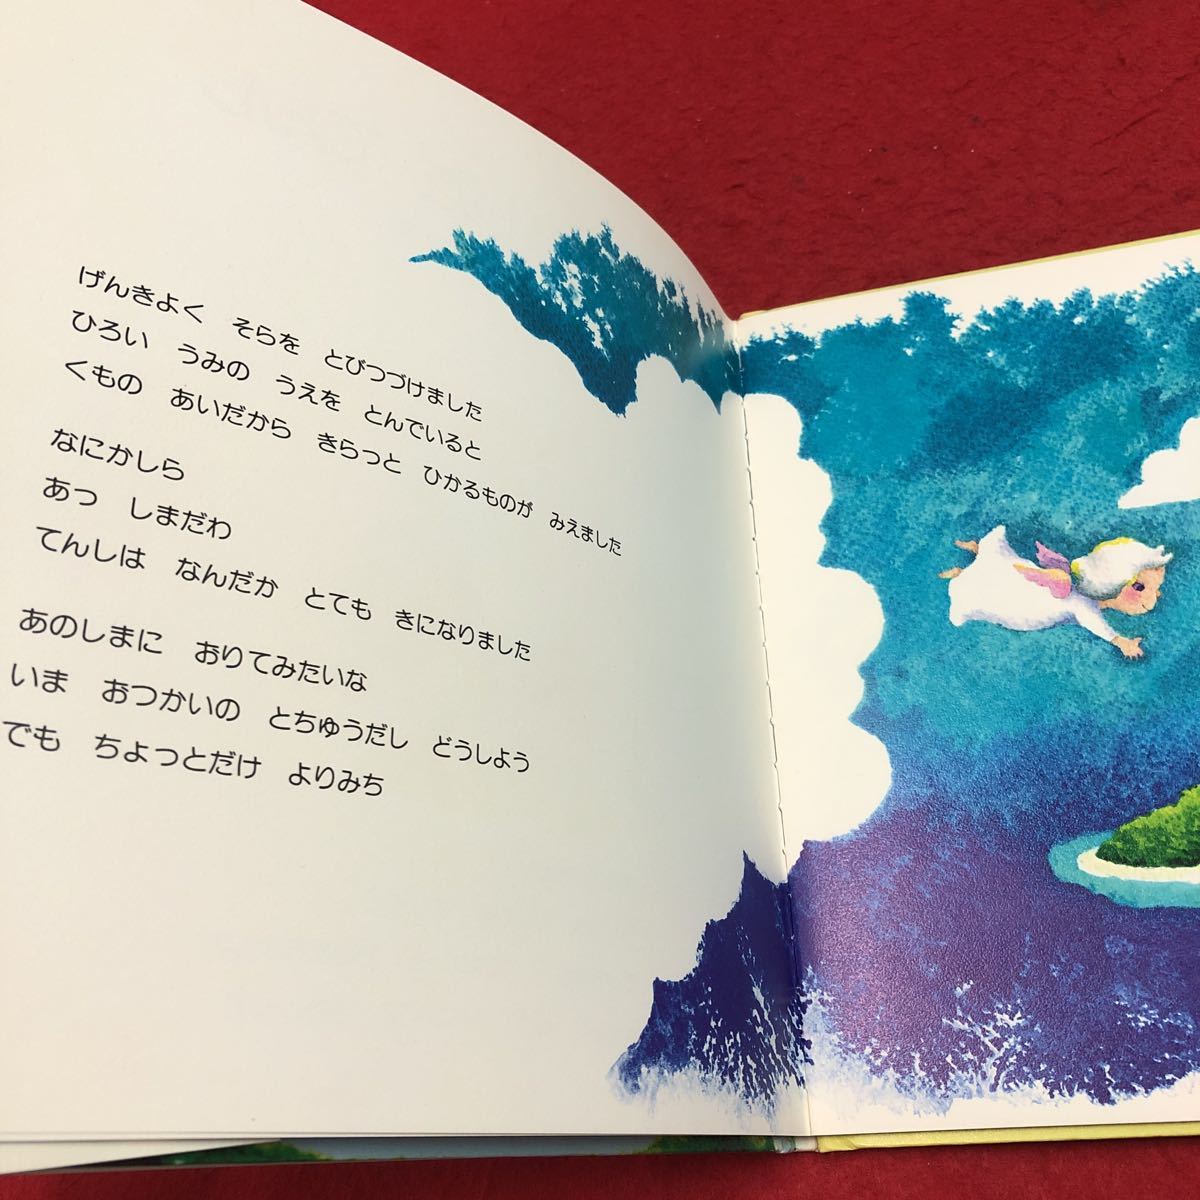 げんきよく　そらを　とびつづけました
ひろい　うみの　うえを　とんでいると
くもの　あいだから　きらっと　ひかるものが　みえました
なにかしら
あっ　しまだわ
てんしは　なんだか　とても　きになりました
あのしまに　おりてみたいな
いま　おつかいの　とちゅうだし　どうしよう
でも　ちょっとだけ　よりみち